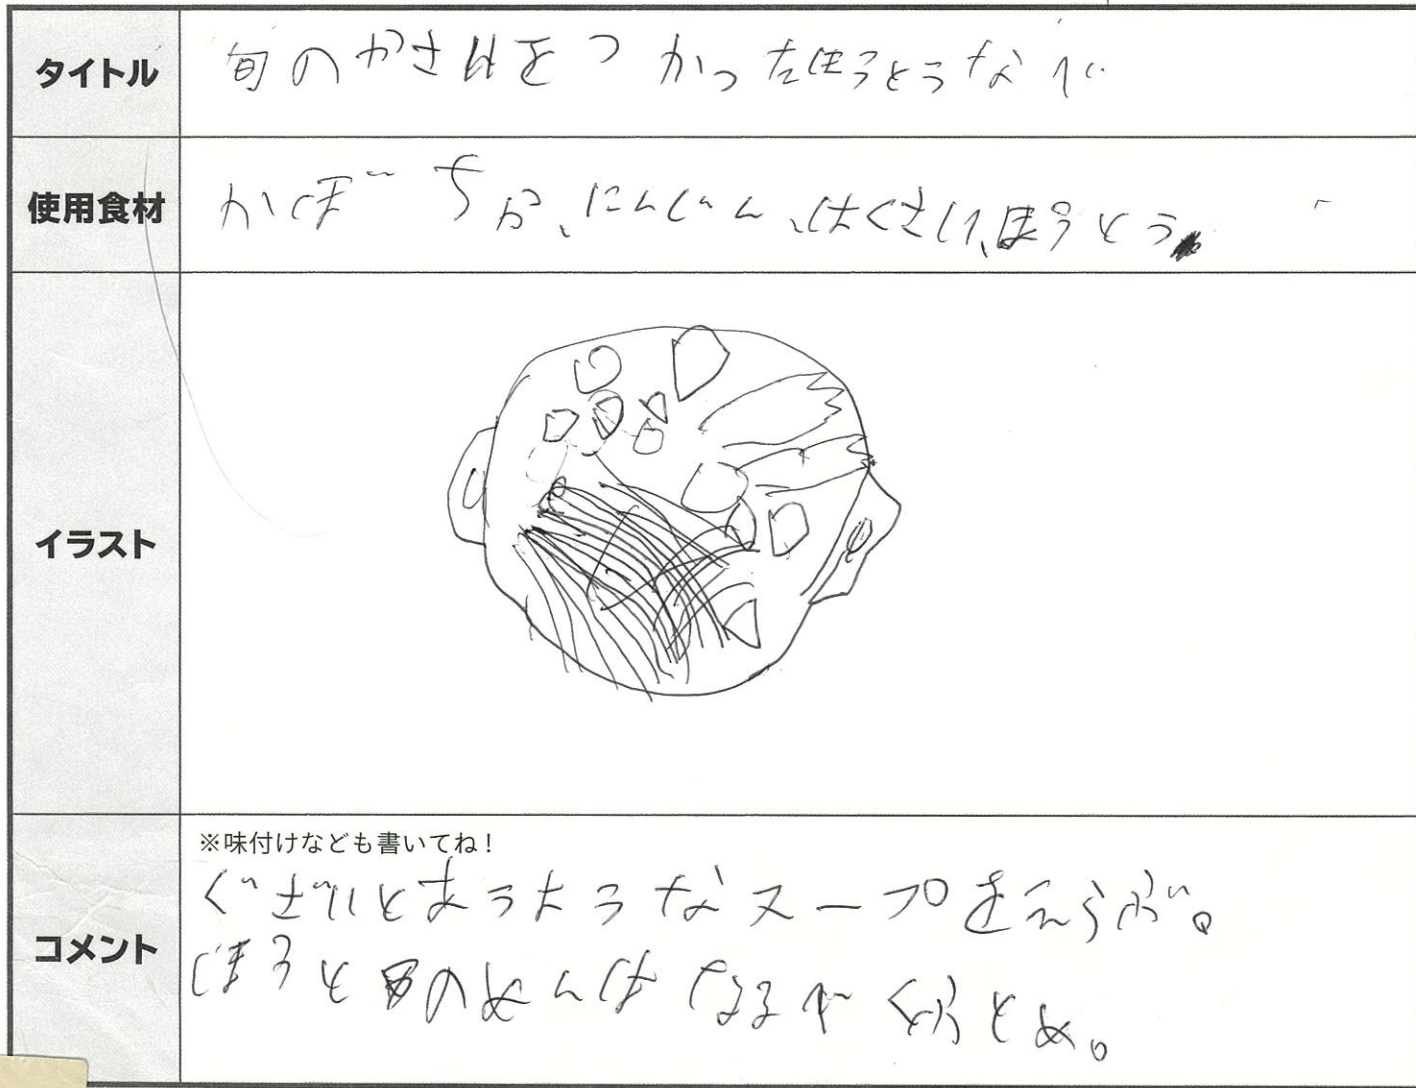 タイトル
旬のやさいをつかったほうとうなべ
使用食材
かぼちゃ、にんじん、はくさい、ほうとう
イラスト
コメント
※味付けなども書いてね!
ぐざいとあうようなスープをえらぶ。
ほうとうのめんはなるべくふとめ。